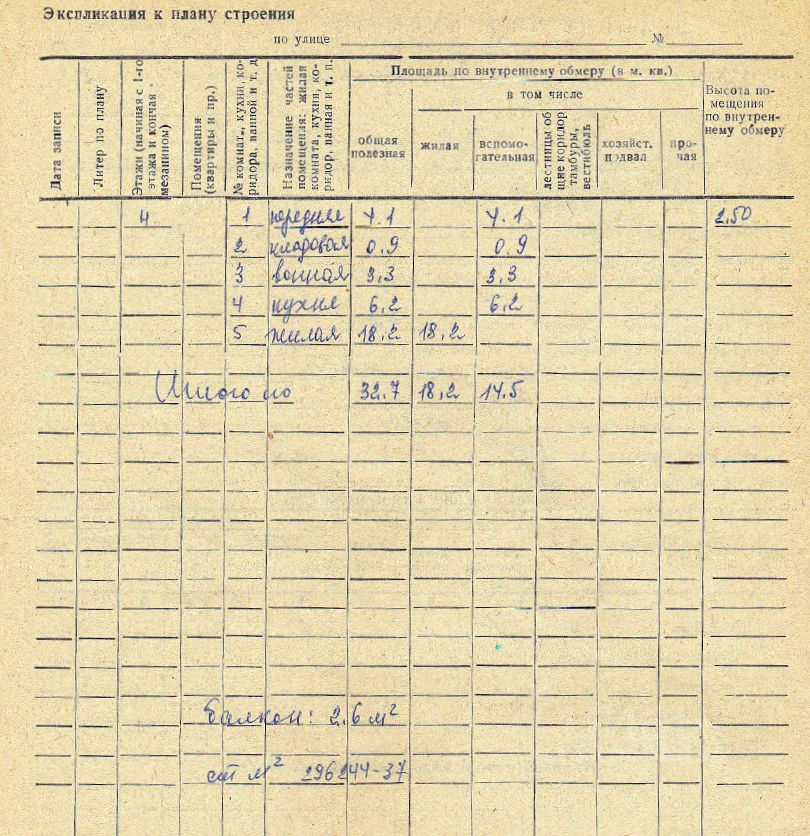 Экспликация к плану строения
по улице №
Дата записи
Литер по плану
Этажи (начиная с 1-го
этажа и кончая
мезанином)
Помещения
(квартиры и пр.)
№ комнат., кухни, ко-
ридора, ванной и т. д.
Назначение частей
помещения: жилая
комната, кухня, ко-
ридор, ванная и т. п.
Площадь по внутреннему обмеру (в м. кв.)
общая
полезная
в том числе
жилая
вспомо-
гательная
лестницы об
щие коридор
тамбуры,
вестибюль
хозяйст.
подвал
про-
чая
Высота по-
мещения
по внутрен-
нему обмеру
4 1 передняя 4.1 4.1 2,50
2 кладовая 0.9 0.9
3 ванная 3,3 3,3
4 кухня 6,2 6,2
5 жилая 18,2 18,2
Итого по 32.7 18,2 14.5
балкон: 2.6 м²
ст м² 296244-37